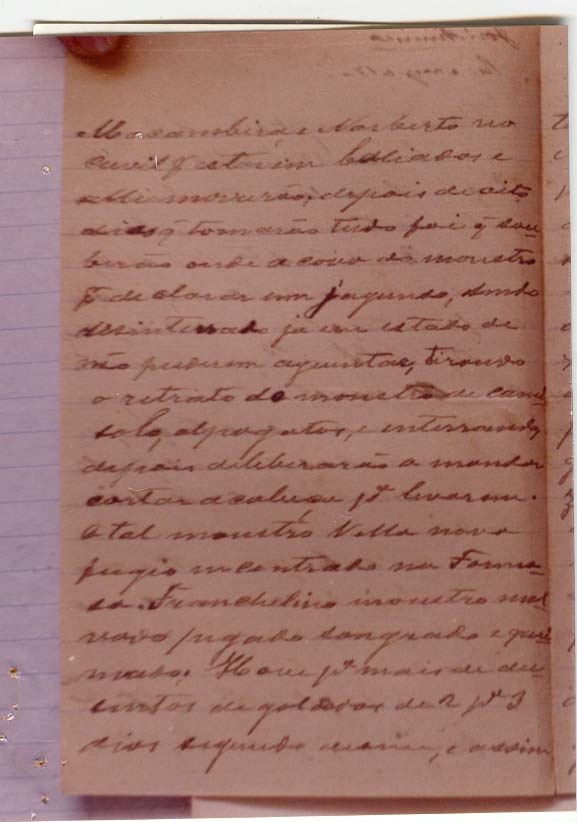 Macambira e Norberto no
q estavim baliados e
alli morrerão, depois de oito
dias q tomarão tudo foi q sou-
berão onde a cova do monstro
p. declarar um jagunso, sendo
desinterrado já em estado de
não puderem aguentar, tirando
o retrato do monstro de cami-
sola, alpragatas, e interrando,
depois deliberarão a mandar
cortar a cabesa pª levarem.
O tal monstro Villa nova
fugio incontrado na Formo-
sa. Franchelino monstro mal-
vado pegado sangrado e quei-
mado. Houve pª mais de du-
sentos degolados de 2 pª 3
dias segundo e assim